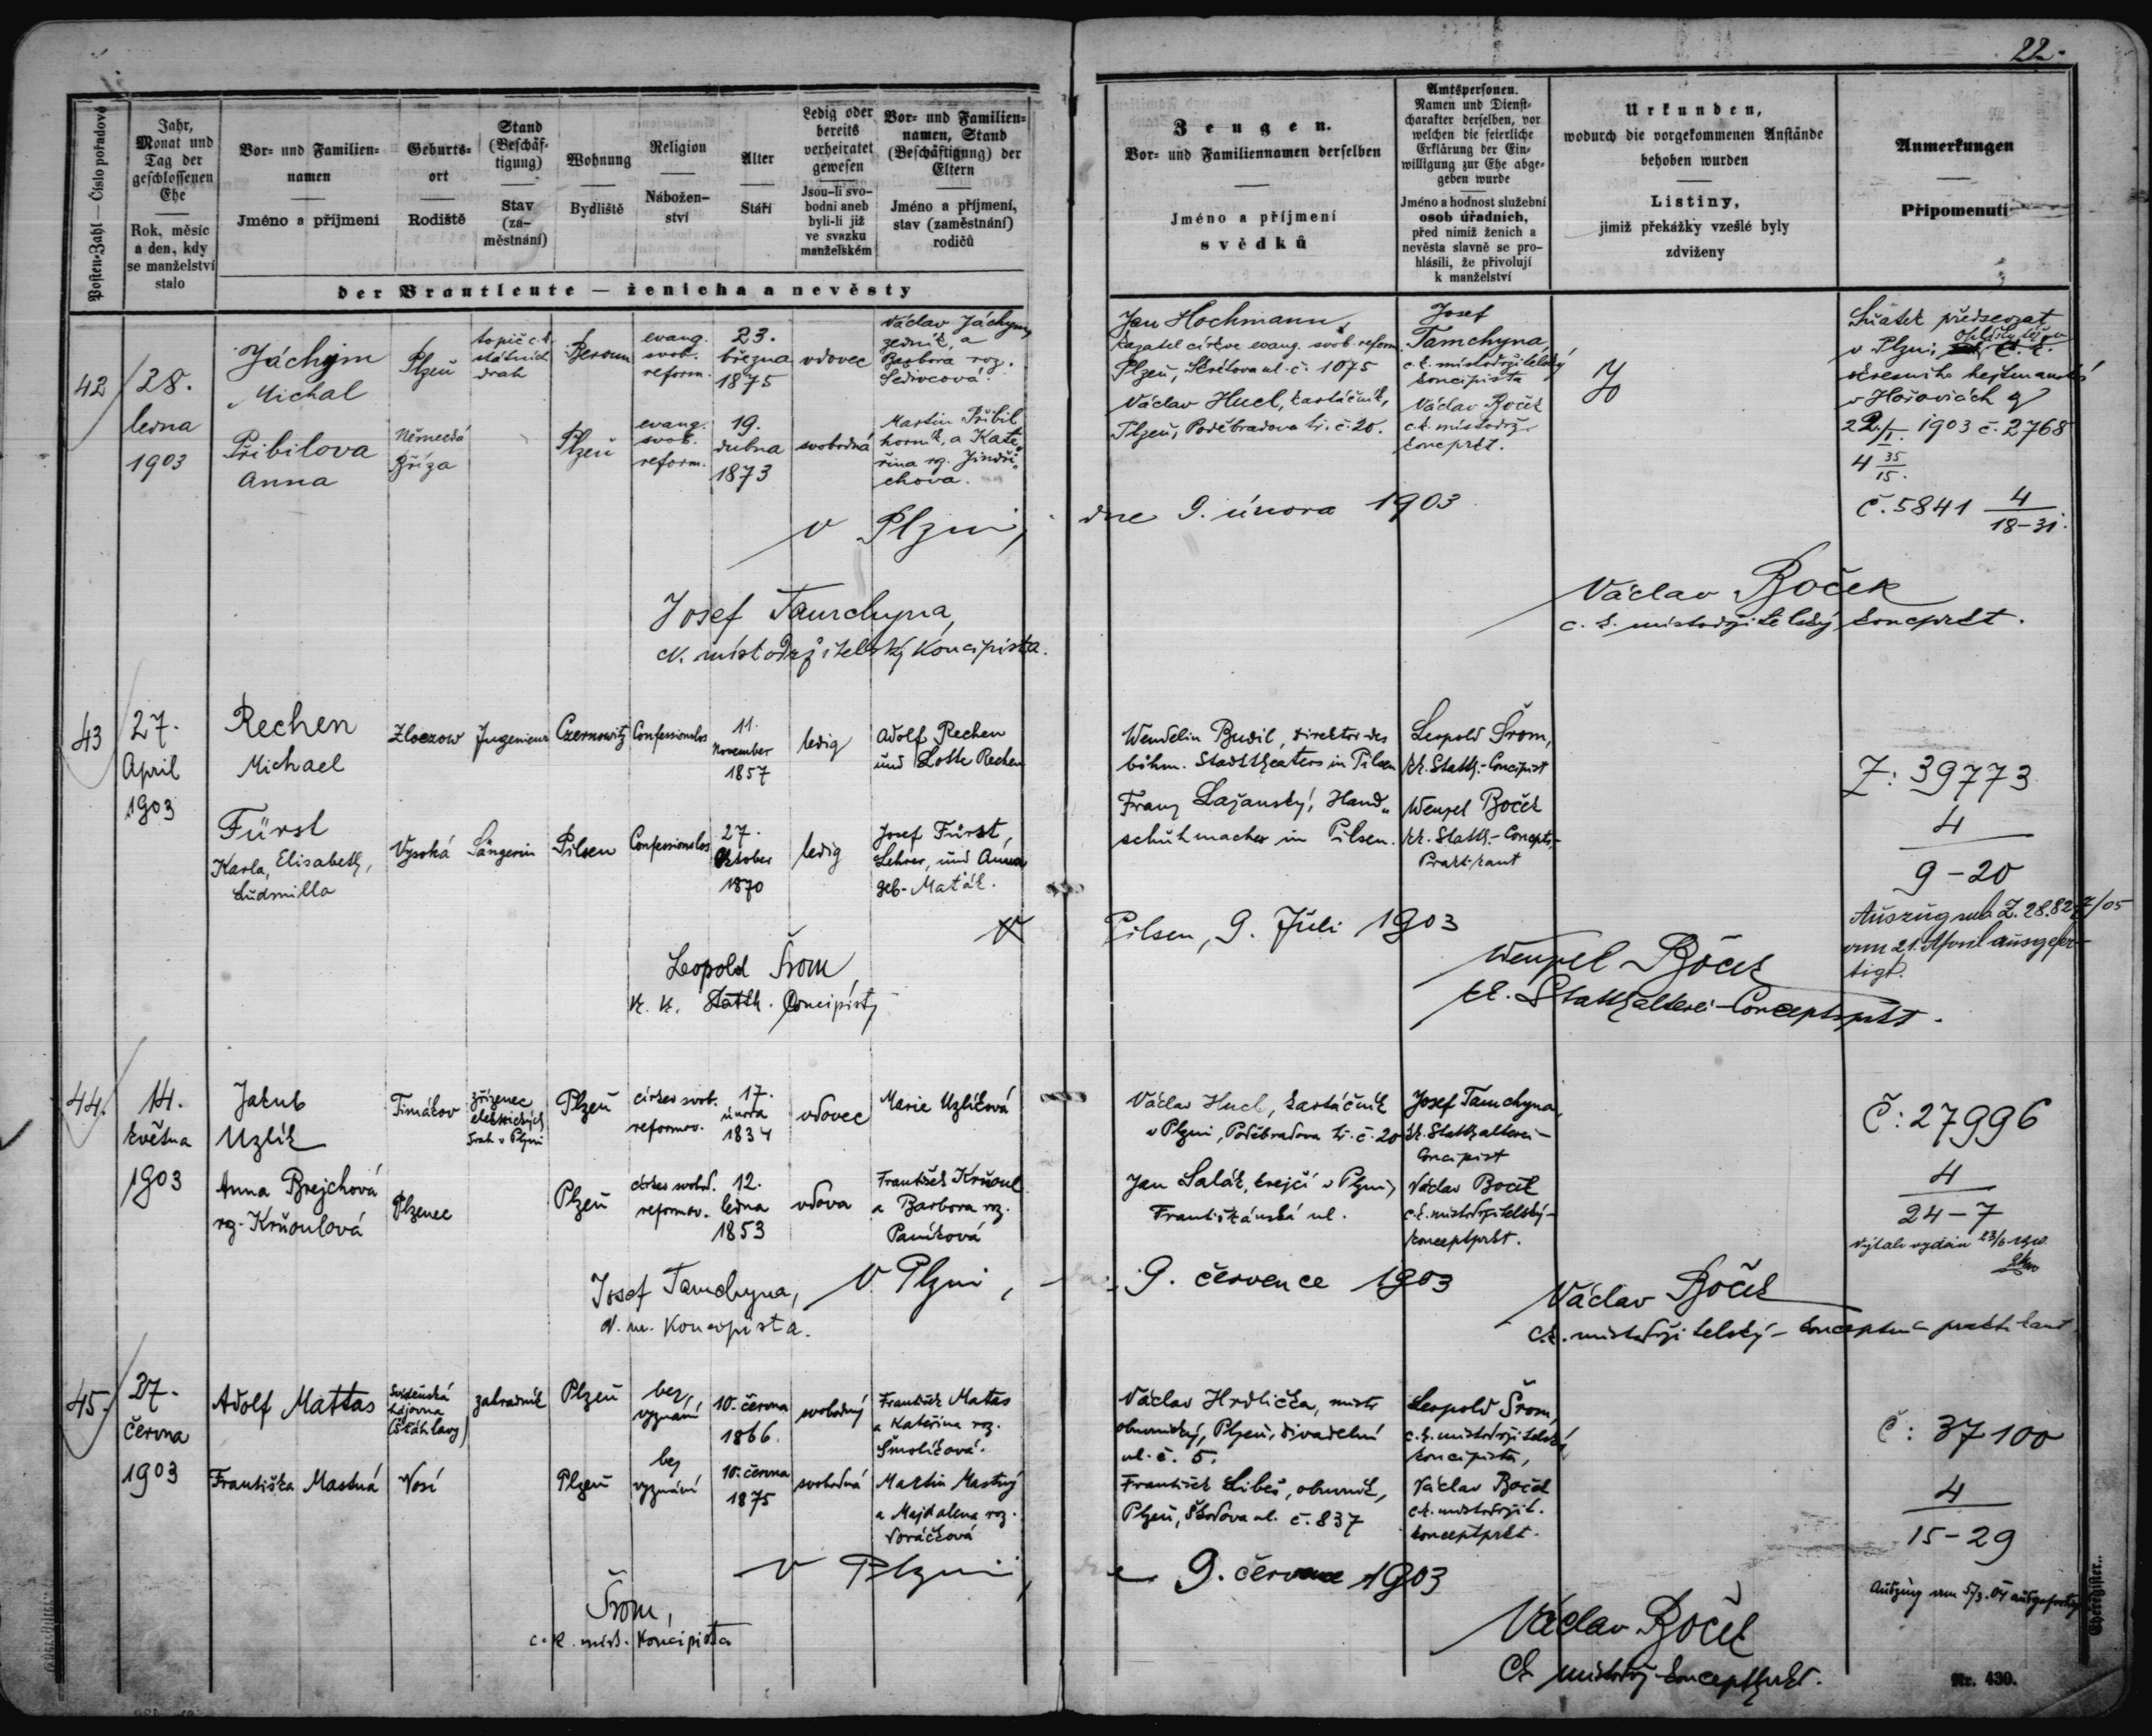 22.
Posten-Zahl — Číslo pořadové
Jahr,
Monat und
Tag der
geschlossenen
Ehe
Rok, měsíc
a den, kdy
se manželství
stalo
Vor- und Familien-
namen
Jméno a příjmení
Geburts-
ort
Rodiště
Stand
(Beschäf-
tigung)
Stav
(za-
městnání)
Wohnung
Bydliště
Religion
Nábožen-
ství
Alter
Stáří
Ledig oder
bereits
verheiratet
gewesen
Jsou-li svo-
bodni aneb
byli-li již
ve svazku
manželském
Vor- und Familien-
namen, Stand
(Beschäftigung) der
Eltern
Jméno a příjmení,
stav (zaměstnání)
rodičů
der Brautleute — ženicha a nevěsty
Zeugen.
Vor- und Familiennamen derselben
Jméno a příjmení
svědků
Amtspersonen.
Namen und Dienst-
charakter derselben, vor
welchen die feierliche
Erklärung der Ein-
willigung zur Ehe abge-
geben wurde
Jméno a hodnost služební
osob úřadních,
před nimiž ženich a
nevěsta slavně se pro-
hlásili, že přivolují
k manželství
Urkunden,
wodurch die vorgekommenen Anstände
behoben wurden
Listiny,
jimiž překážky vzešlé byly
zdviženy
Anmerkungen
Připomenutí
42
28.
ledna
1903
Jáchym
Michal
Plzeň
topič c.k.
státních
drah
Beroun
evang.
svob.
reform.
23.
března
1875
vdovec
Václav Jáchym,
zedník, a
Barbora roz.
Šedivcová.
Přibilova
Anna
Německá
Bříza
Plzeň
evang.
svob.
reform.
19.
dubna
1873
svobodná
Martin Přibil
horník, a Kate„
řina roz. Jindři„
chova.
Jan Hochmann,
kazatel církve evang. svob. reform.
Plzeň, Skrétova ul. č. 1075
Václav Hucl, kartáčník,
Plzeň, Poděbradova tř. č. 20.
Josef
Tamchyna,
c.k. místodržitelský
koncipista
Václav Boček
c.k. místodrž.
koncprkt.
Sňatek předsevzat
v Plzni
okresního hejtmanství
v Hořovicích z
22./I. 1903 č. 2768
4 35/15.
č. 5841 4/18-31.
V Plzni, dne 9. února 1903
Josef Tamchyna,
ck. místodržitelský koncipista.
Václav Boček
c. k. místodržitelský koncprkt.
43
27.
April
1903
Rechen
Michael
Zloczow
Ingenieur
Czernowitz
Confessionslos
11.
November
1857
ledig
Adolf Rechen
und Lotte Rechen
Fürst
Karla, Elisabeth,
Ludmilla
Vysoká
Sängerin
Pilsen
Confessionslos
27.
Oktober
1870
ledig
Josef Fürst,
Lehrer, und Anna
geb. Maťák.
Wendelin Budil, Direktor des
böhm. Stadttheaters in Pilsen
Franz Lažanský, Hand„
schuhmacher in Pilsen.
Leopold Šrom,
kk. Statth.-Concipist
Wenzel Boček
kk. Statth.-Concepts-
Praktikant
Z: 39773
4
9-20
Auszug sub Z. 28.827/05
vom 21. April ausgefer-
tigt.
Pilsen, 9. Juli 1903
Leopold Šrom,
k. k. Statth. Concipist
Wenzel Boček
kk. Statthalterei-Conceptsprkt.
44.
14.
května
1903
Jakub
Uzlík
Timákov
zřízenec
elektrických
drah v Plzni
Plzeň
církev svob.
reformov.
17.
února
1834
vdovec
Marie Uzlíková
Anna Brejchová
roz. Krňoulová
Plzenec
Plzeň
církev svobod.
reformov.
12.
ledna
1853
vdova
František Krňoul
a Barbora roz.
Paníková
Václav Hucl, kartáčník
v Plzni, Poděbradova tř. č. 20
Jan Salák, krejčí v Plzni,
Františkánská ul.
Josef Tamchyna,
kk. Statthalterei-
Concipist
Václav Boček
c.k. místodržitelský-
konceptprkt.
Č: 27996
4
24-7
V Plzni, 9. července 1903
Josef Tamchyna,
ck. m. koncipista.
Václav Boček
c.k. místodržitelský-konceptní praktikant.
45.
27.
června
1903
Adolf Mattas
Svidenská
hájovna
(Šťáhlavy)
zahradník
Plzeň
bez
vyznání
10. června
1866.
svobodný
František Matas
a Kateřina roz.
Smolíková.
Františka Mastná
Nosí
Plzeň
bez
vyznání
10. června
1875
svobodná
Martin Mastný
a Majdalena roz.
Voráčková
Václav Hrdlička, mistr
obuvnický, Plzeň, divadelní
ul. č. 5.
František Libeš, obuvník,
Plzeň, Škodova ul. č. 837
Leopold Šrom,
c.k. místodržitelský
koncipista,
Václav Boček
c.k. místodržit.
konceptprkt.
č: 37100
4
15-29
Auszug vom 5/3.04 ausgefertigt
V Plzni, dne 9. července 1903
Šrom,
c.k. míst. koncipista
Václav Boček
Ck místodrž-konceptprkt.
Eheregister.
Nr. 430.